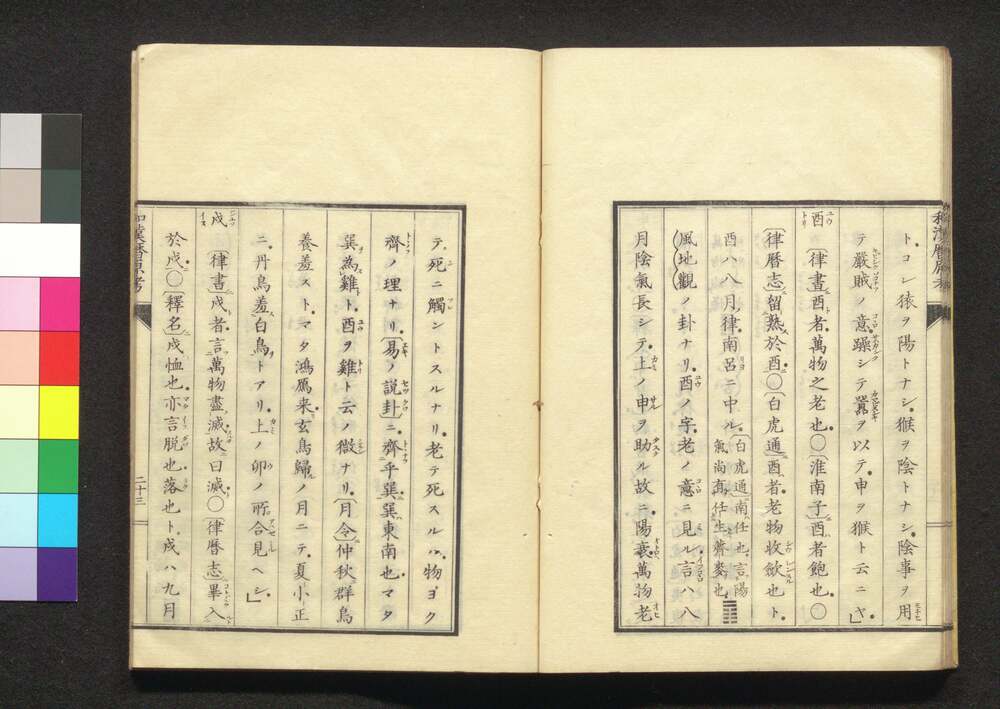 和漢暦原考
ト。コレ猿ヲ陽トナシ。猴ヲ陰トナシ。陰事ヲ用
テ嚴賊ノ意躁シテ囂ヲ以テ。申ヲ猴ト云ニヤ。」
酉 〔律書〕酉者。萬物之老也。〇〔淮南子〕酉者飽也。〇
〔律暦志〕留熟於酉。〇〔白虎通〕酉者老物收斂也ト。
酉ハ八月。律南呂ニ中ル。〔白虎通〕南任也。言陽
氣尚有任生薺麥也。䷓
(風地觀)ノ卦ナリ。酉ノ字。老ノ意ニ見ル。言ハ八
月陰氣長シテ。上ノ申ヲ助ル故ニ。陽衰萬物老
テ。死ニ觸ントスルナリ。老テ死スルハ。物ヨク
齊ノ理ナリ。〔易〕ノ説卦ニ。齊乎巽。巽東南也。マタ
巽為雞ト。酉ヲ雞ト云ノ徴ナリ。〔月令〕仲秋群鳥
養羞スト。マタ鴻鴈来。玄鳥歸ノ月ニテ。夏小正
ニ。丹鳥羞白鳥トアリ。上ノ卯ノ所合見ヘシ。」
戌 〔律書〕戌者。言萬物盡滅。故曰滅。〇〔律暦志〕畢入
於戌。〇〔釋名〕戌恤也。亦言脱也。落也ト。戌ハ九月
和漢暦原考
二十三